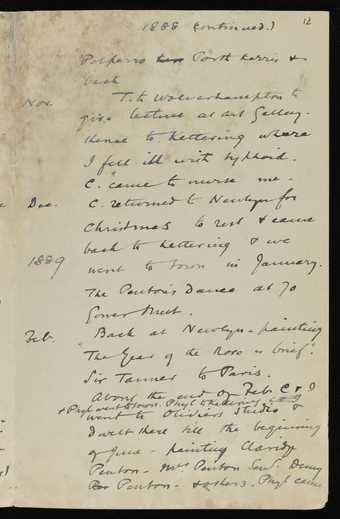 1888 (continued.)
12
Polperro Porth Kerris &
back
Nov. T. to Wolverhampton to
give lecture at art Gallery.
thence to Kettering where
I fell ill with typhoid.
C. came to nurse me.
Dec. C. returned to Newlyn for
Christmas to rest & came
back to Kettering & we
1889 went to town in January.
The Penton's Dance at 70
Gower Street.
Feb. Back at Newlyn - painting
"The Year of the Rose is brief".
Sir Tanner to Paris.
About the end of Feb. C & I
& Phyl went to town. Phyl to Kettering
went to Olivier's Studio &
dwelt there till the beginning
of June - painting Claridge
Penton - Mrs Penton Senr. Denny
Penton - & others. Phyl came